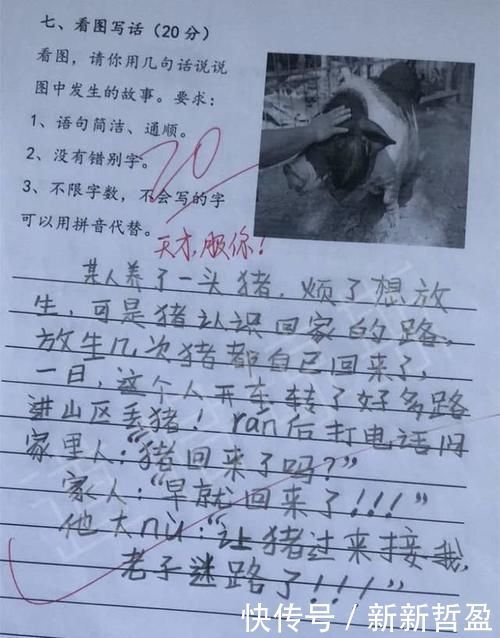 七、看图写话（20分）
看图，请你用几句话说说
图中发生的故事。要求：
1、语句简洁、通顺。
2、没有错别字。
3、不限字数，不会写的字
可以用拼音代替。
20
天才,服你!
某人养了一头猪，烦了想放
生，可是猪认识回家的路，
放生几次猪都自己回来了，
一日，这个人开车转了好多路
进山区丢猪！ran后打电话问
家里人：“猪回来了吗？”
家人：“早就回来了!!!”
他大nù：“让猪过来接我，
老子迷路了!!!”
快传号／新新哲盈